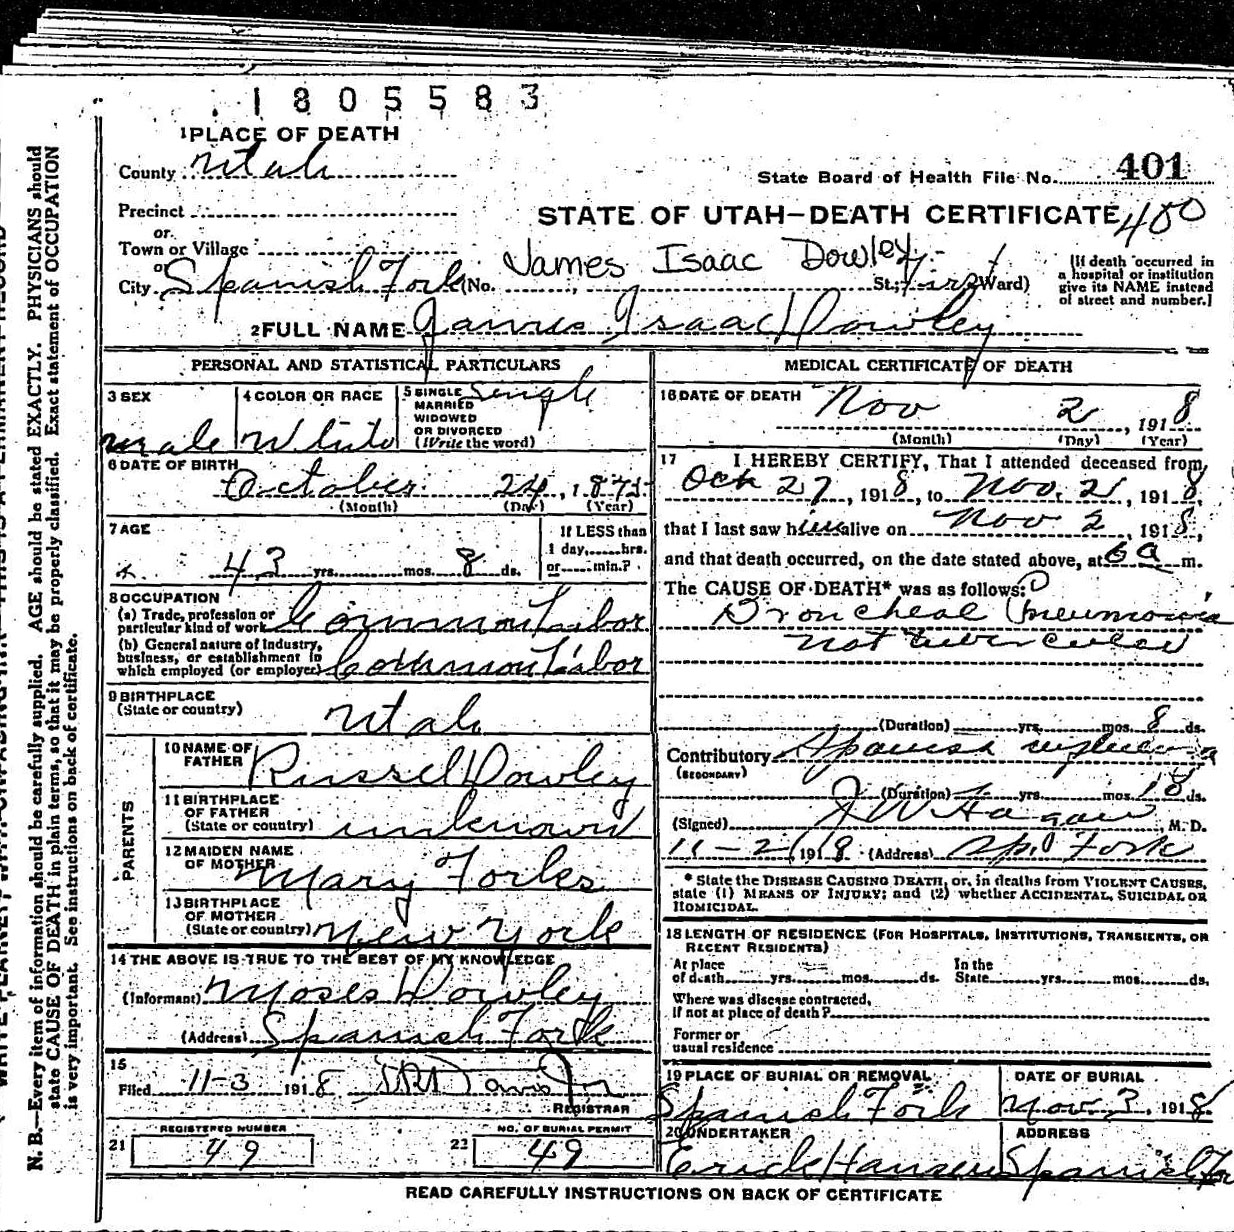 1805583
1 PLACE OF DEATH
County Utah
State Board of Health File No. 401
Precinct
or
Town or Village
STATE OF UTAH—DEATH CERTIFICATE 400
or
City Spanish Fork (No. James Isaac Dowley St.; First Ward)
[If death occurred in
a hospital or institution
give its NAME instead
of street and number.]
2 FULL NAME James Isaac Dowley
PERSONAL AND STATISTICAL PARTICULARS
3 SEX
male
4 COLOR OR RACE
White
5 SINGLE
MARRIED
WIDOWED
OR DIVORCED
(Write the word)
Single
6 DATE OF BIRTH
October 24, 1875
(Month) (Day) (Year)
7 AGE
43 yrs. mos. 8 ds.
If LESS than
1 day, hrs.
or min.?
8 OCCUPATION
(a) Trade, profession or
particular kind of work Common Labor
(b) General nature of industry,
business, or establishment in
which employed (or employer) Common Labor
9 BIRTHPLACE
(State or country)
Utah
PARENTS
10 NAME OF
FATHER Russel Dowley
11 BIRTHPLACE
OF FATHER
(State or country) unknown
12 MAIDEN NAME
OF MOTHER Mary Forbes
13 BIRTHPLACE
OF MOTHER
(State or country) New York
14 THE ABOVE IS TRUE TO THE BEST OF MY KNOWLEDGE
(Informant) Moses Dowley
(Address) Spanish Fork
15
Filed 11-3 1918
REGISTRAR
REGISTERED NUMBER
21 49
NO. OF BURIAL PERMIT
22 49
MEDICAL CERTIFICATE OF DEATH
16 DATE OF DEATH Nov 2, 1918
(Month) (Day) (Year)
17 I HEREBY CERTIFY, That I attended deceased from
Oct 27, 1918, to Nov. 2, 1918,
that I last saw him alive on Nov 2, 1918,
and that death occurred, on the date stated above, at 6 a m.
The CAUSE OF DEATH* was as follows:
Broncheal Pneumonia
not tubercular
(Duration) yrs. mos. 8 ds.
Contributory Spanish influenza
(SECONDARY)
(Duration) yrs. mos. 18 ds.
(Signed) J W Hagan, M. D.
11-2, 1918 (Address) Sp. Fork
* State the DISEASE CAUSING DEATH, or, in deaths from VIOLENT CAUSES,
state (1) MEANS OF INJURY; and (2) whether ACCIDENTAL, SUICIDAL OR
HOMICIDAL.
18 LENGTH OF RESIDENCE (FOR HOSPITALS, INSTITUTIONS, TRANSIENTS, OR
RECENT RESIDENTS)
At place
of death yrs. mos. ds.
In the
State yrs. mos. ds.
Where was disease contracted,
If not at place of death?
Former or
usual residence
19 PLACE OF BURIAL OR REMOVAL
Spanish Fork
DATE OF BURIAL
Nov 3, 1918
20 UNDERTAKER
Erick Hansen
ADDRESS
Spanish
READ CAREFULLY INSTRUCTIONS ON BACK OF CERTIFICATE
N. B.—Every item of information should be carefully supplied. AGE should be stated EXACTLY. PHYSICIANS should
state CAUSE OF DEATH in plain terms, so that it may be properly classified. Exact statement of OCCUPATION
is very important. See instructions on back of certificate.